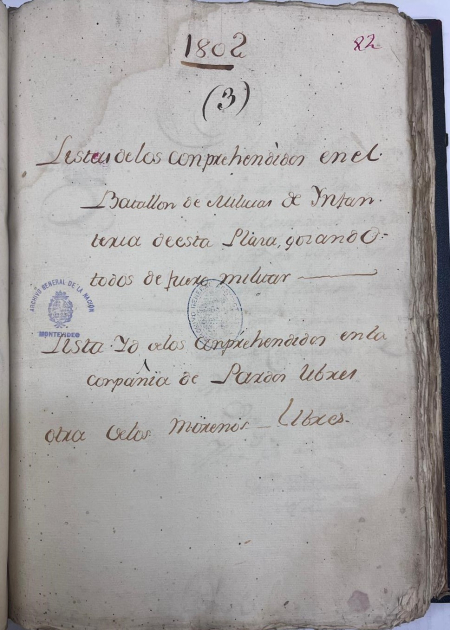 1802
82
(3)
Listas delos conprehendidos en el
Batallon de Milicias de Ynfan-
teria deesta Plaza, gozando
todos de fuero militar
ARCHIVO GENERAL DE LA NACIÓN
MONTEVIDEO
Lista Yd delos Conprehendidos en la
conpañia de Pardos Libres
otra delos Morenos Libres.